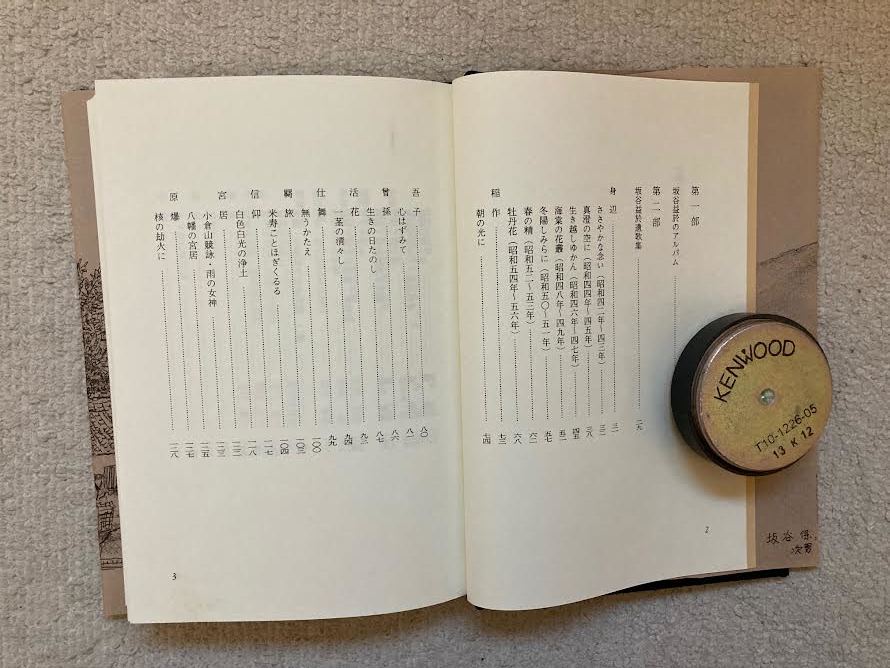 第一部
坂谷益於のアルバム
第二部
坂谷益於遺歌集 二九
身辺 三一
ささやかな念い(昭和四二年〜四三年) 三二
真澄の空に(昭和四四年〜四五年) 三八
生き越しゆかん(昭和四六年〜四七年) 四五
海棠の花叢(昭和四八年〜四九年) 五二
冬陽しみらに(昭和五〇〜五一年) 五七
春の精(昭和五二〜五三年) 六二
牡丹花(昭和五四年〜五六年) 六八
稲作 七三
朝の光に 七四
2
吾子 八〇
心はずみて 八一
曾孫 八六
生きの日たのし 八七
活花 九三
一茎の清々し 九四
仕舞 九九
無うかたえ 一〇〇
羈旅 一〇三
米寿ことほぎくるる 一〇四
信仰 一一七
白色白光の浄土 一一八
宮居 一二二
小倉山競詠・雨の女神 一二三
八幡の宮居 一二五
原爆 一二七
核の劫火に 一二八
3
KENWOOD
T10-1226-05
13 K 12
坂谷
次男